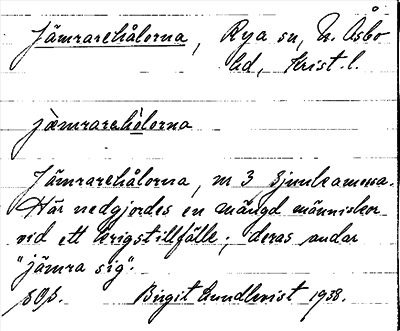 Jämrarehålorna, Rya sn, N. Åsbo
hd, Krist. l.
jàmrarehòlorna
Jämrarehålorna, nr 3 Sjunkamossa.
Här nedgjordes en mängd människor
vid ett krigstillfälle; deras andar
"jämra sig".
Birgit Lundkvist 1938.